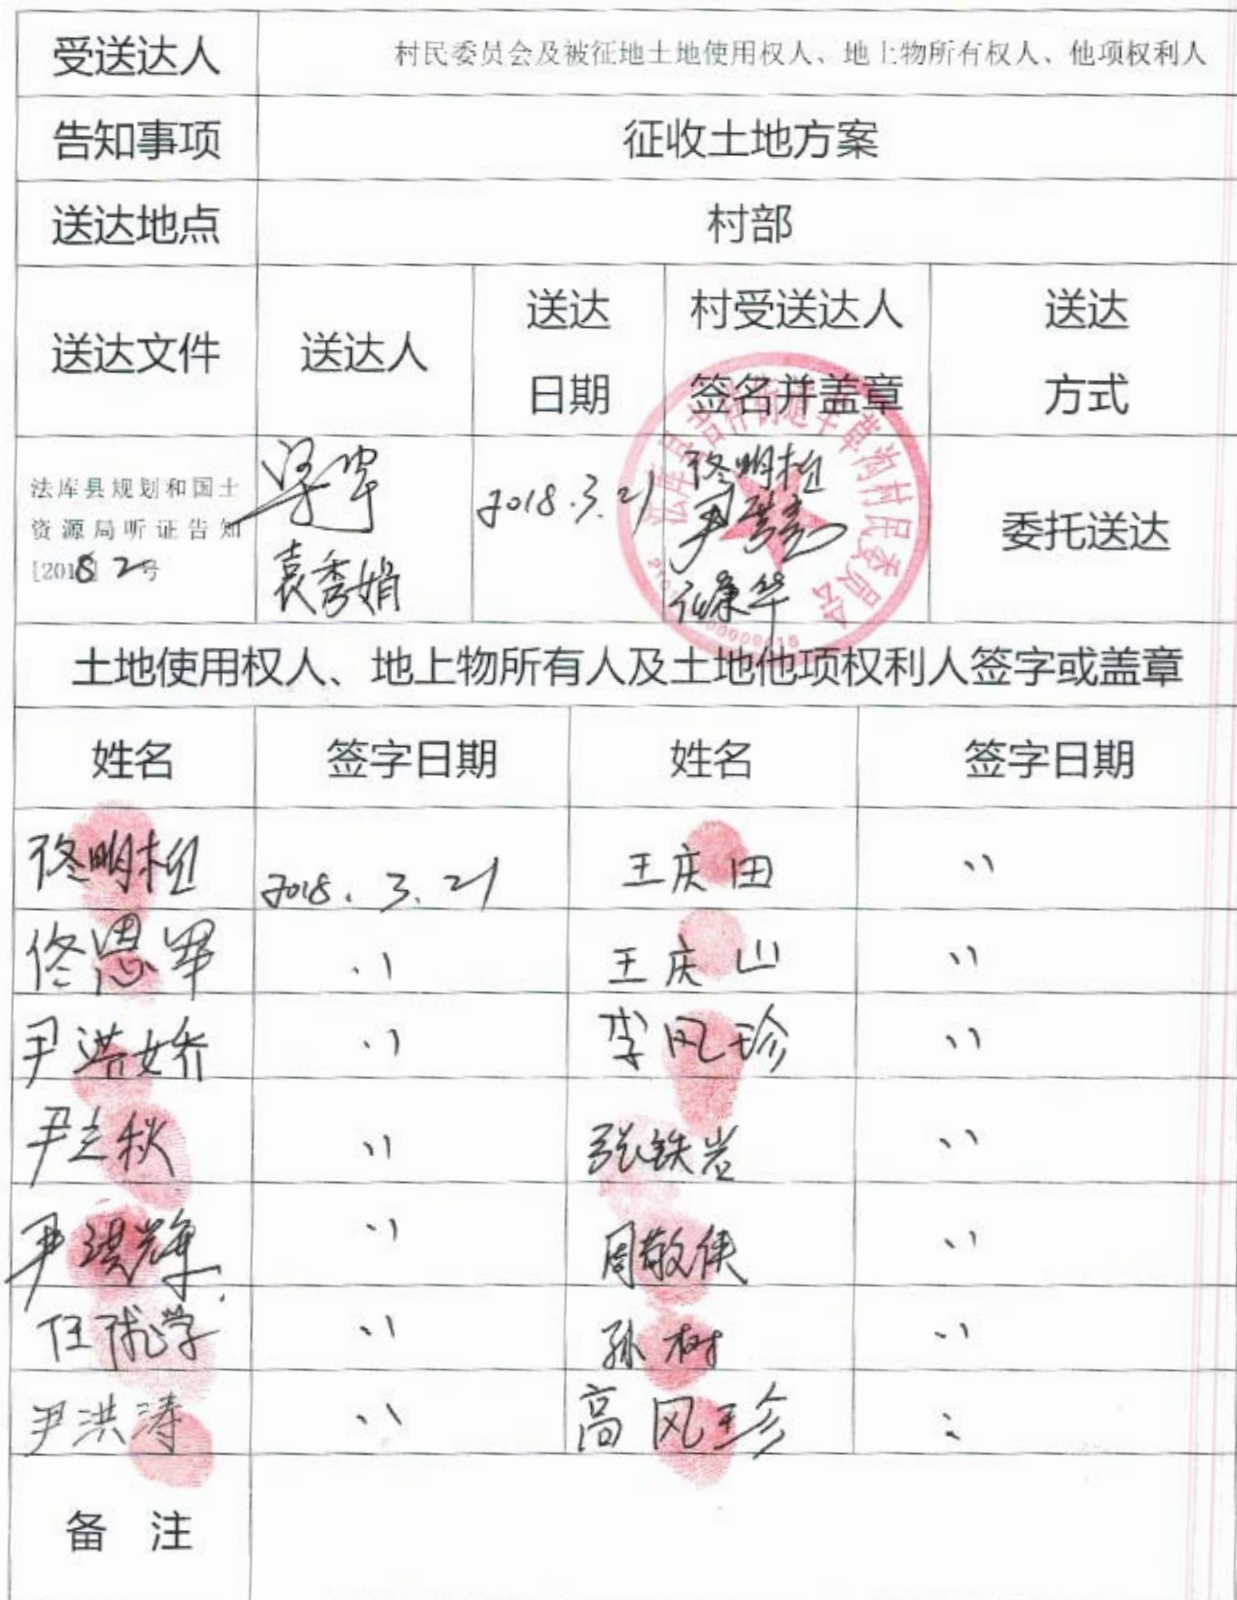 受送达人 村民委员会及被征地土地使用权人、地上物所有权人、他项权利人
告知事项 征收土地方案
送达地点 村部
送达文件 送达人 送达日期 村受送达人签名并盖章 送达方式
法库县规划和国土
资源局听证告知
[2018] 2号
袁秀娟
2018.3.21
佟明桓
委托送达
土地使用权人、地上物所有人及土地他项权利人签字或盖章
姓名 签字日期 姓名 签字日期
佟明桓 2018.3.21 王庆田 〃
佟恩军 〃 王庆山 〃
尹洪娇 〃 李风珍 〃
尹立秋 〃 张铁岩 〃
尹洪辉 〃 周敬侠 〃
〃 孙树 〃
尹洪涛 〃 高风珍 〃
备 注